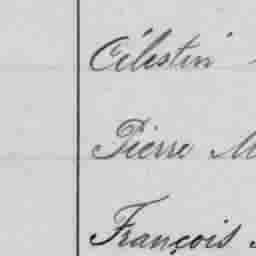 Célestin
Pierre M
François